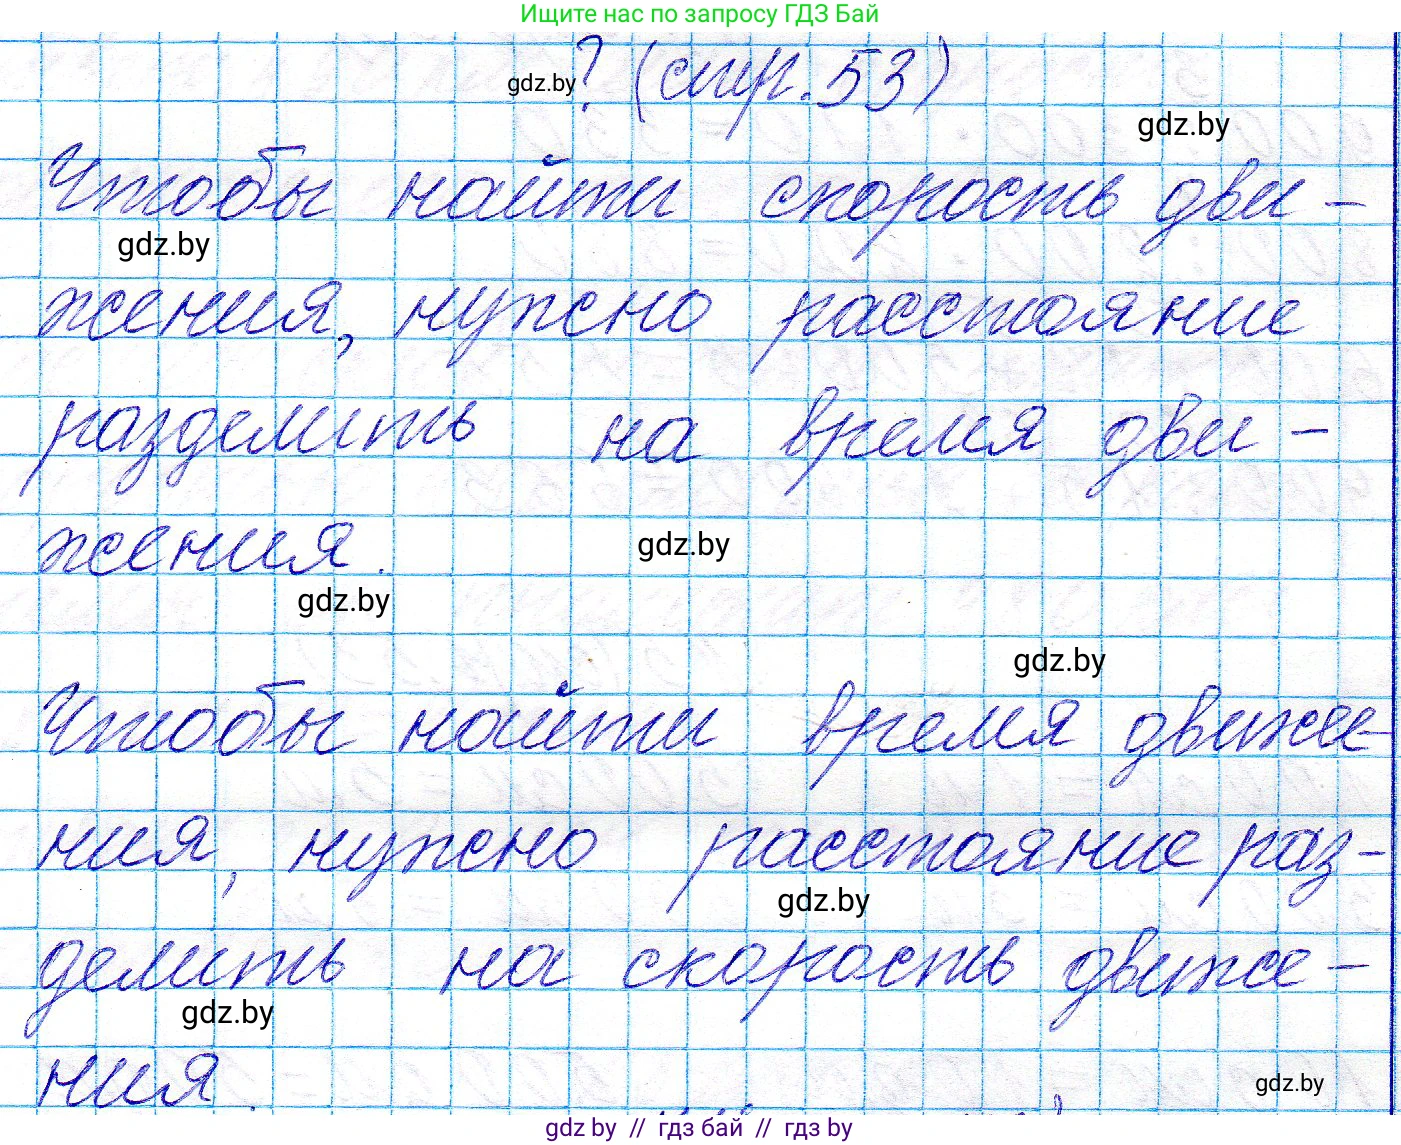 Ищите нас по запросу ГДЗ Бай
? (стр. 53)
gdz.by
gdz.by
Чтобы найти скорость дви-
gdz.by
жения, нужно расстояние
разделить на время дви-
жения.
gdz.by
gdz.by
gdz.by
Чтобы найти время движе-
ния, нужно расстояние раз-
gdz.by
делить на скорость движе-
gdz.by
ния.
gdz.by
gdz by // гдз бай // гдз by